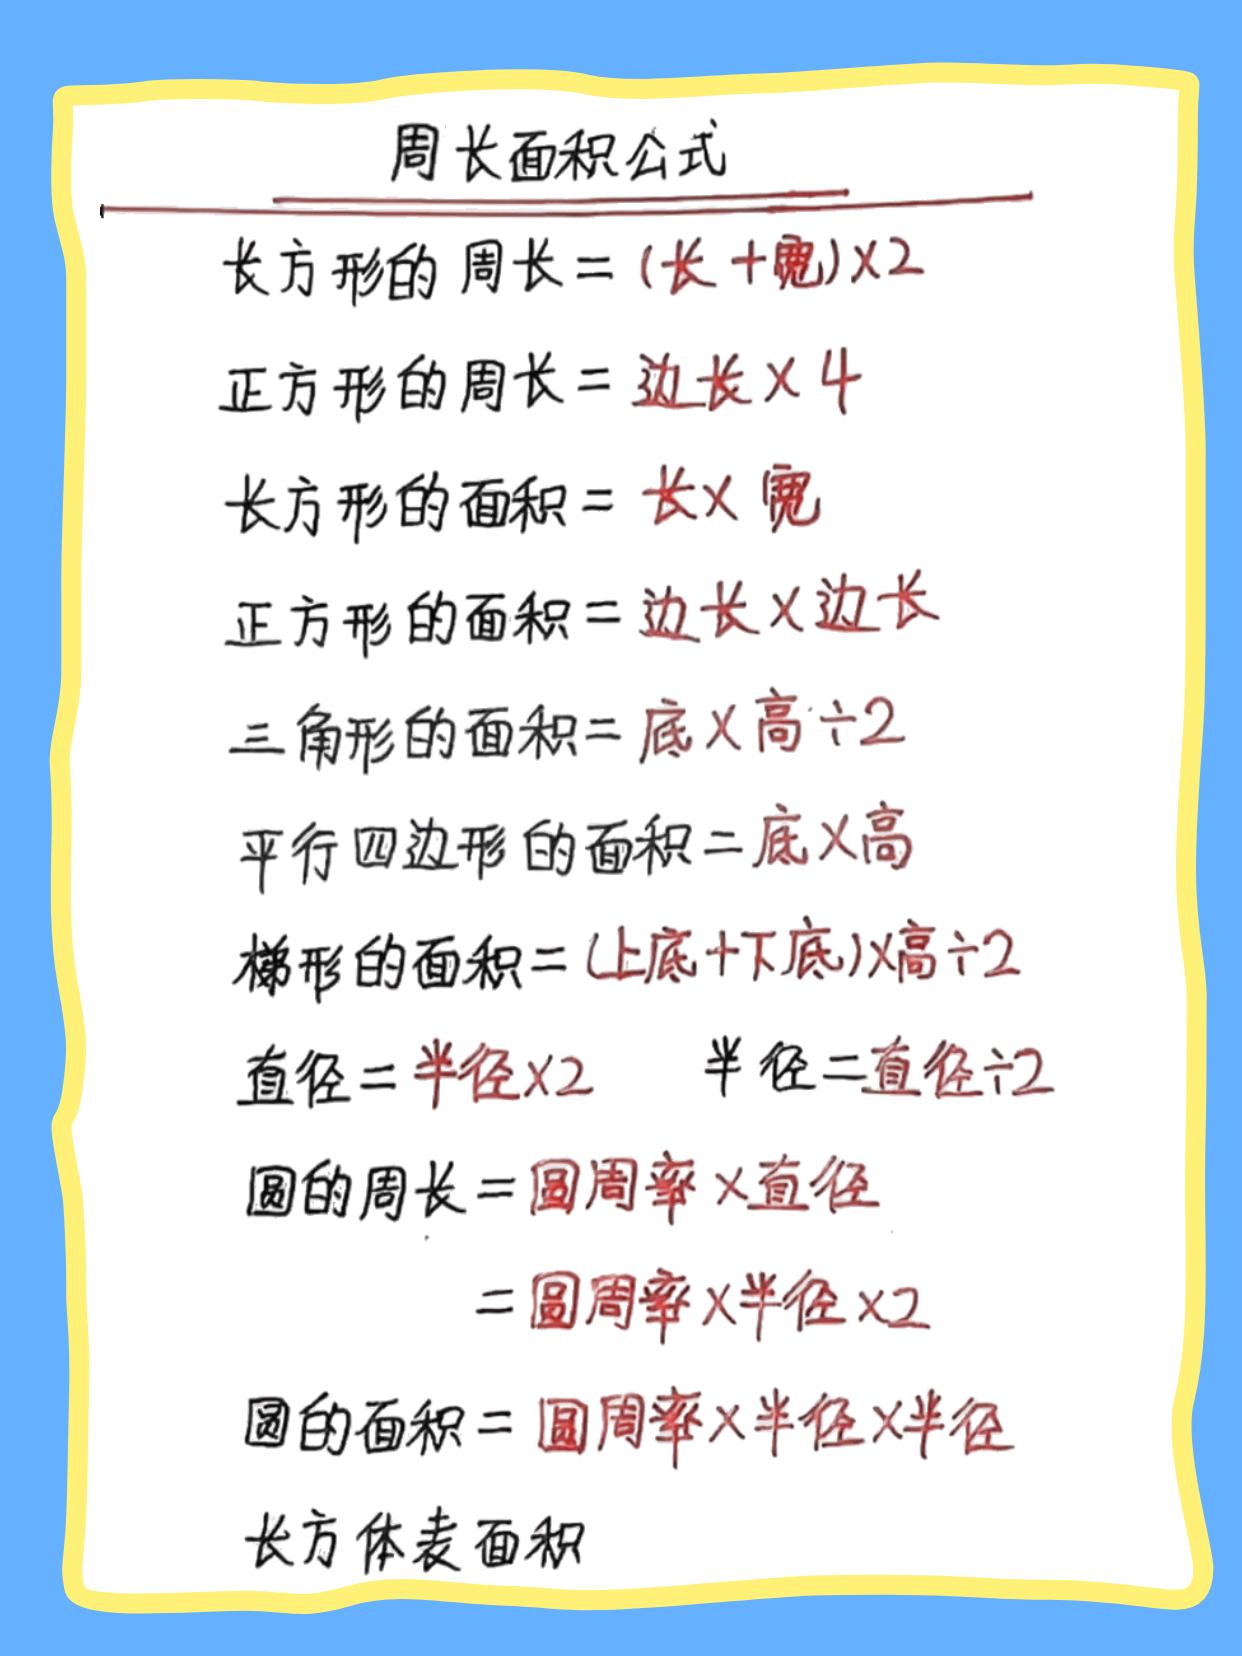 周长面积公式
长方形的周长=(长+宽)×2
正方形的周长=边长×4
长方形的面积=长×宽
正方形的面积=边长×边长
三角形的面积=底×高÷2
平行四边形的面积=底×高
梯形的面积=(上底+下底)×高÷2
直径=半径×2 半径=直径÷2
圆的周长=圆周率×直径
=圆周率×半径×2
圆的面积=圆周率×半径×半径
长方体表面积